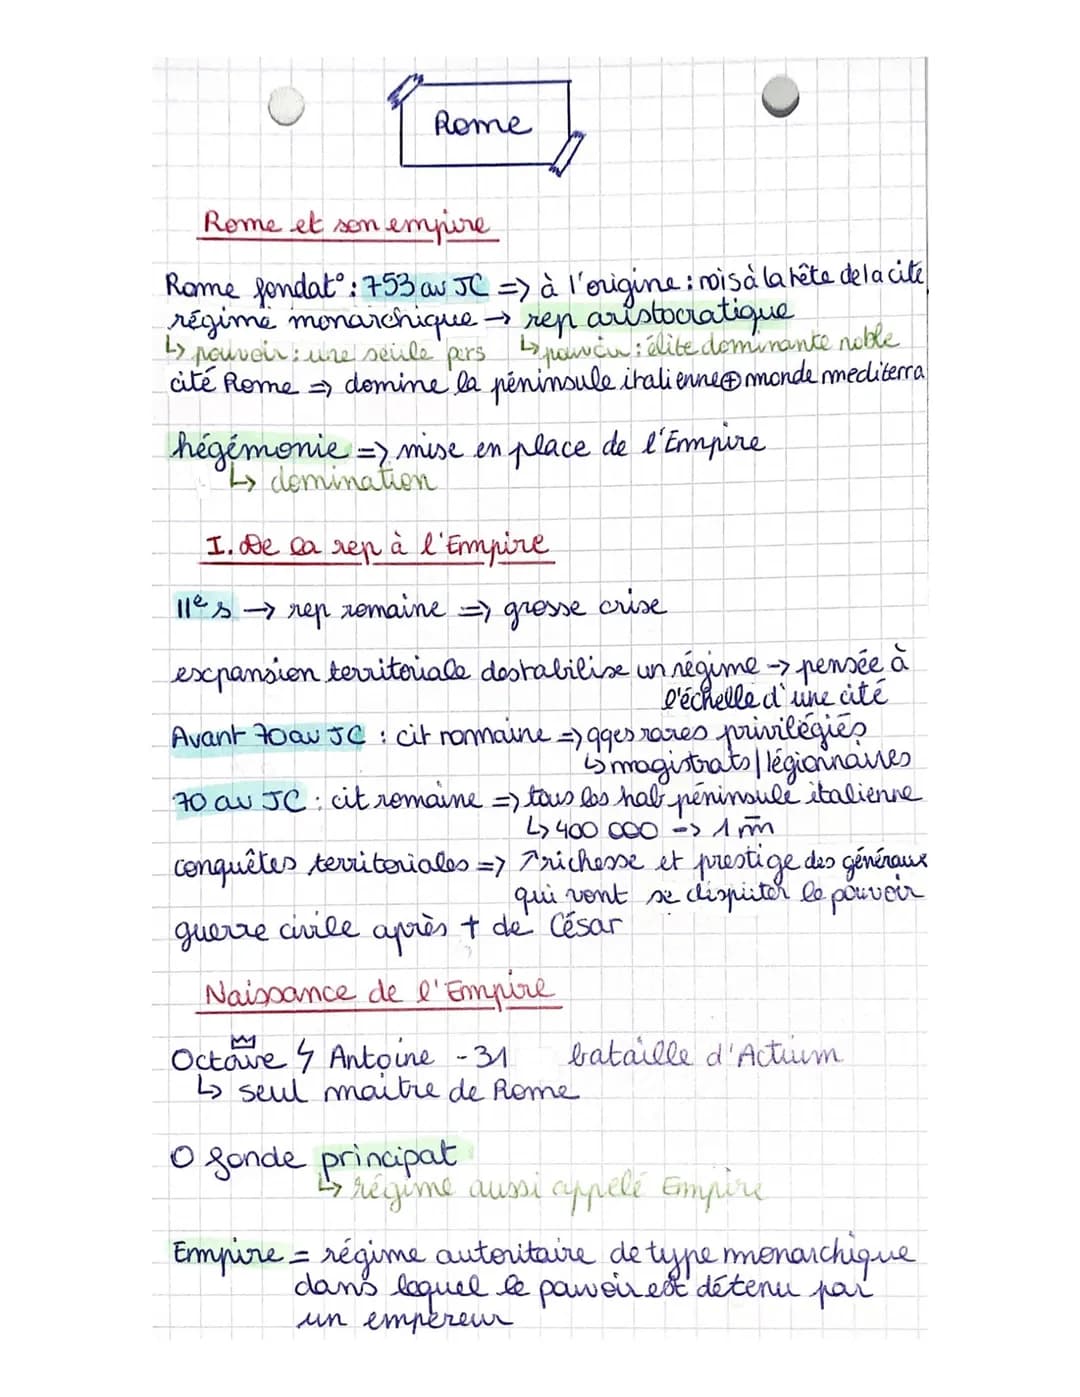 Rome
Rome et son empire
Rome fondat° : 753 av JC => à l'origine : rois à la tête de la cité
régime monarchique → rep aristocratique
↳ pouvoir : une seule pers ↳ pouvoir : élite dominante noble
cité Rome => domine la péninsule italienne ⊕ monde mediterra
hégémonie => mise en place de l'Empire
↳ domination
I. De la rep à l'Empire
IIe s → rep romaine => grosse crise
expansion territoriale destabilise un régime → pensée à
l'échelle d'une cité
Avant 70 av JC : cit romaine => qqes rares privilégiés
↳ magistrats / légionnaires
70 av JC : cit romaine => tous les hab péninsule italienne
↳ 400 000 -> 1 m̅
conquêtes territoriales => ↗ richesse et prestige des généraux
qui vont se disputer le pouvoir
guerre civile après † de César
Naissance de l'Empire
Octave ϟ Antoine - 31 bataille d'Actium
↳ seul maître de Rome
O fonde principat
↳ régime aussi appelé Empire
Empire = régime autoritaire de type monarchique
dans lequel le pouvoir est détenu par
un empereur